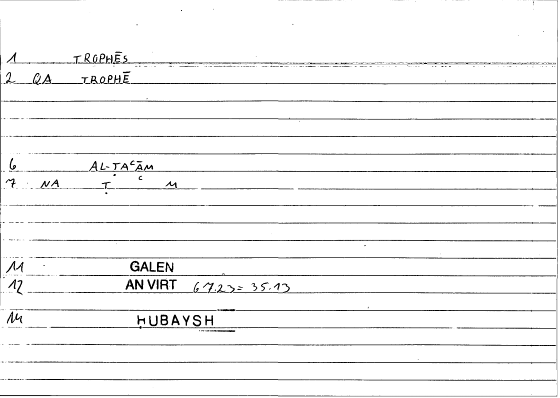 1 TROPHĒS
2 QA TROPHĒ
6 AL-ṬAᶜĀM
7 NA Ṭ ᶜ M
11 GALEN
12 AN VIRT 67.23 = 35.13
14 ḤUBAYSH